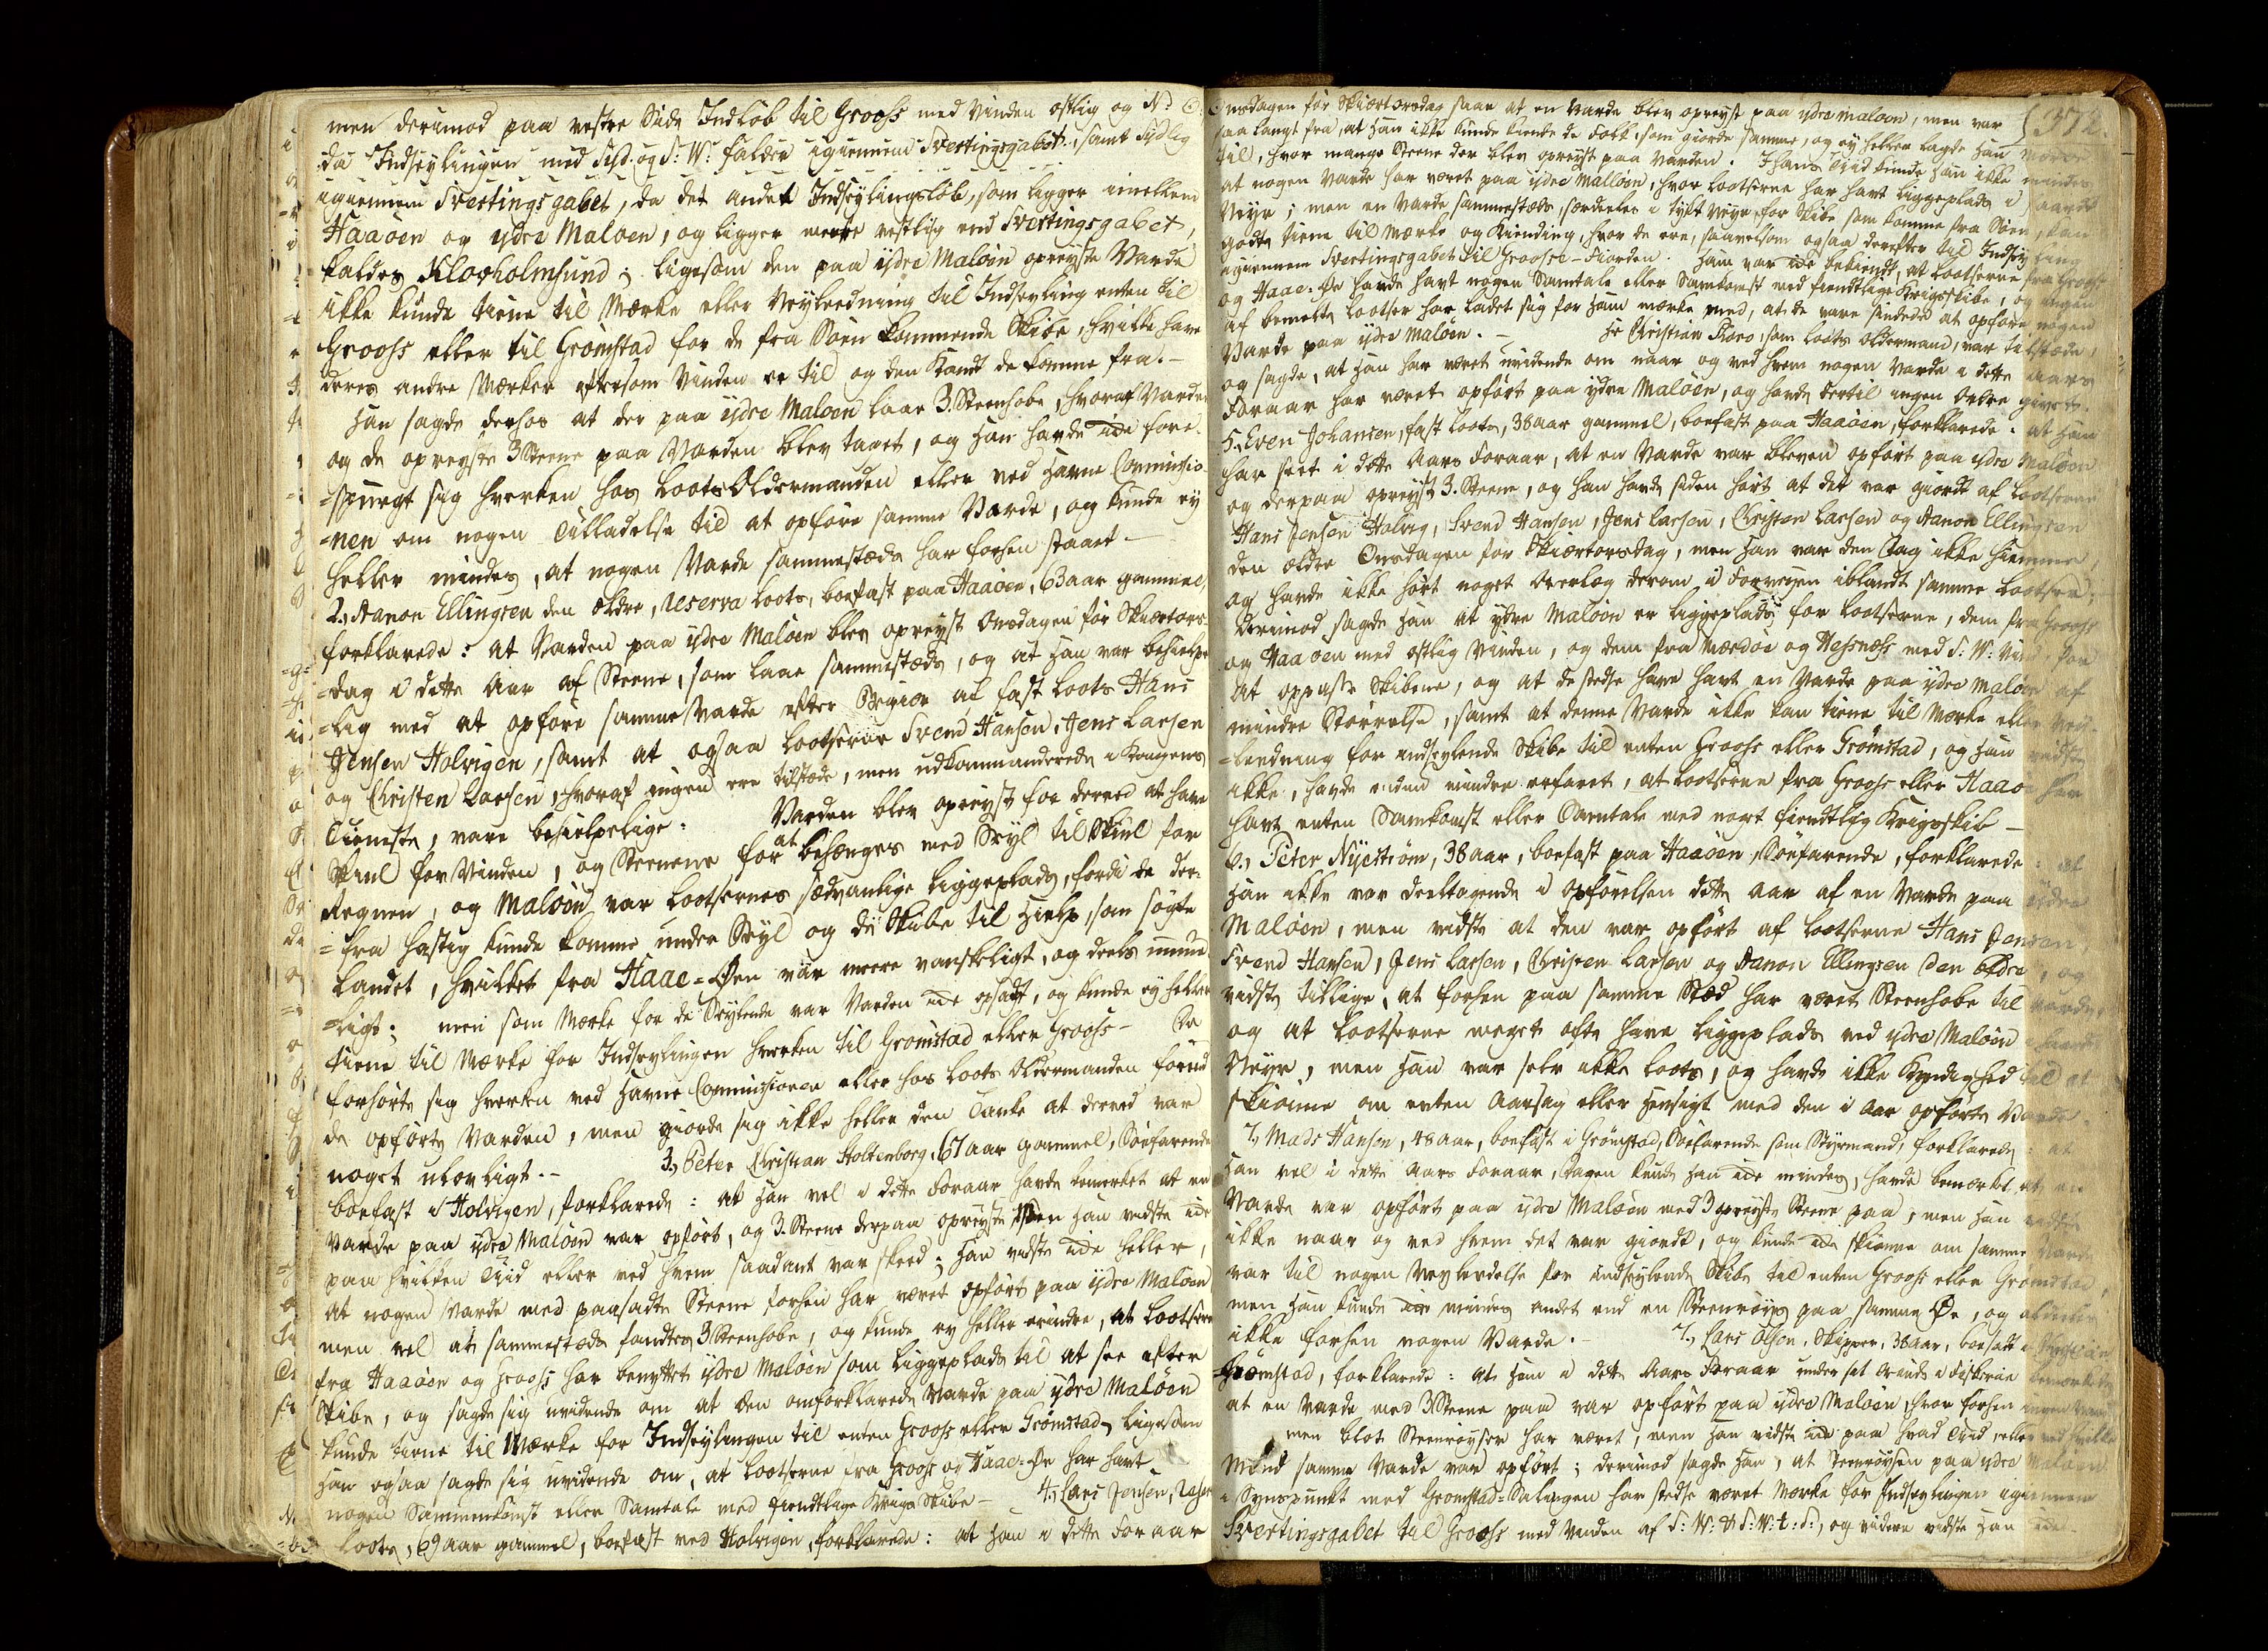 men derimod paa vestre Side Indløb til Grooss med Vinden østlig og N: O:
da Indseylingen med Syd. og S: W: falder igiennem Svertingsgabet, samt Sydlig
igiennem Svertingsgabet, da det andet Indseylingsløb, som ligger imellem
Haaøen og ydre Maløen, og ligger meere vestlig end Svertingsgabet,
kaldes Klovholmsund; ligesom den paa ydre Maløen opreyste Varde
ikke kunde tiene til Mærke eller Veyleedning til Indseyling enten til
Grooss eller til Grømstad for de fra Søen kommende Skibe, hvilke have
deres andre Mærker eftersom Vinden er til og den Kandt de komme fra. -
Han sagde derhos at der paa ydre Maløen laae 3. Steenhobe, hvoraf Varden
og de opreyste 3 Steene paa Varden blev taget, og han havde icke fore-
=spurgt sig hverken hos Loots Oldermanden eller ved Havne Commissio-
=nen om nogen Tilladelse til at opføre samme Varde, og kunde ey
heller mindes, at nogen Varde sammestæds har forhen staaet. -
2., Aanon Ellingsen den ældre, Reserva Loots, boefast paa Haaøen, 63 aar gammel,
forklarede: at Varden paa ydre Maløen blev opreyst Onsdagen før Skiertors-
=dag i dette Aar af Steene, som laae sammestæds, og at han var behielpe-
=lig med at opføre samme Varde efter Begiær af fast Loots Hans
Jensen Holvigen, samt at ogsaa Lootserne Svend Hansen, Jens Larsen
og Christen Larsen, hvoraf ingen ere tilstæde, men udkommanderede i Kongens
Tieneste, vare behielpelige: Varden blev opreyst for derved at have
Skiul for Vinden, og Steenene for at behænges med Seyl til Skiul for
Regnen, og Maløen var Lootsernes sædvanlige Liggeplads, fordi de der-
=fra hastig kunde komme under Seyl og die Skibe til Hielp, som søgte
Landet, hvilket fra Haae=Øen var meere vanskeligt, og deels umue-
=ligt; men som Mærke for de Seylende var Varden icke opsadt, og kunde ey heller
tiene til Mærke for Indseylingen hverken til Grømstad eller Grooss - De
forhørte sig hverken ved Havne Commissionen eller hos Loots Oldermanden førend
de opførte Varden, men giorde sig ikke heller den Tanke at derved var
noget ulovligt. - 3., Peter Christian Stoltenborg, 67 aar gammel, Søefarende
boefast i Holvigen, forklarede: at han vel i dette Foraar havde bemerket at en
Varde paa ydre Maløen var opført, og 3. Steene derpaa opreyste, men han vidste icke
paa hvilken Tiid eller ved hvem saadant var skeed; han vidste icke heller,
at nogen Varde med paasadte Steene forhen har været opført paa ydre Maløen
men vel at sammestæds fandtes 3 Steenhobe, og kunde ey heller erindre, at Lootserne
fra Haaøen og Grooss har benyttet ydre Maløen som Liggeplads til at see efter
Skibe, og sagde sig uvidende om at den omforklarede Varde paa ydre Maløen
kunde tiene til Mærke for Indseylingen til enten Grooss eller Grømstad, ligesom
han ogsaa sagde sig uvidende om, at Lootserne fra Grooss og Haae=Øe har havt
nogen Sammenkomst eller Samtale med fiendtlige Krigs Skibe - 4., Lars Jensen, Reserv
Loots, 69 aar gammel, boefast ved Holvigen, forklarede: at han i dette Foraar
372.
Onsdagen før Skiertorsdag saae at en Varde blev opreyst paa ydre Maløen, men var
saa langt fra, at han ikke kunde kiende de Folk, som giorde samme, og ey heller lagde han Mærke
til, hvor mange Steene der blev opreyst paa Varden. I hans Tiid kunde han ikke mindes
at nogen Varde har været paa ydre Malløen, hvor Lootserne har havt Liggeplads i haardt
Veyr; men en Varde sammestæds, særdeeles i tykt Veyr, for Skibe som komme fra Søen, kan
godt tiene til Mærke og Kiending, hvor de ere, saavelsom ogsaa derefter til Indseyling
igiennem Svertingsgabet til Groose-Fiorden. Ham var icke bekiendt, at Lootserne fra Grooss
og Haae=Øe havde havt nogen Samtale eller Samkomst med fiendtlige Krigsskibe, og ingen
af bemelte Lootser har ladet sig for ham mærke med, at de vare sindede at opføre nogen
Varde paa ydre Maløen. - Hr Christian Floro, som Loots Oldermand, var tilstæde,
og sagde, at han har været uvidende om naar og ved hvem nogen Varde i dette Aars
Foraar har været opført paa ydre Maløen, og havde dertil ingen Ordre givet.
5., Even Johansen, fast Loots, 38 aar gammel, boefast paa Haaøen, forklarede: at han
har seet i dette Aars Foraar, at en Varde var bleven opført paa ydre Maløen
og derpaa opreyst 3. Steene, og han havde siden hørt at det var giordt af Lootserne
Hans Jensen Holvig, Svend Hansen, Jens Larsen, Christen Larsen og Aanon Ellingsen
den ældre Onsdagen før Skiærtorsdag, men han var den Dag ikke hiemme,
og havde ikke hørt noget Overlæg derom i Forveyen iblandt samme Lootser;
derimod sagde han at ydre Maløen er Liggeplads for Lootserne, dem fra Grooss
og Haaøen med østlig Vinden, og dem fra Mærdøe og Hessnæss med S: W: Vind, for
at oppasse Skibene, og at de stedse have havt en Varde paa ydre Maløen af
mindre Størrelse, samt at denne Varde ikke kan tiene til Mærke eller Vey-
=leedning for indseylende Skibe til enten Grooss eller Grømstad, og han vidste
ikke, havde endnu mindre erfaret, at Lootserne fra Grooss eller Haaøe har
havt enten Samkomst eller Samtale med noget fiendtlig Krigsskib -
6., Peter Nyestrøm, 38 aar, boefast paa Haaøen, Søefarende, forklarede: at
han ikke var deeltagende i Opførelsen dette Aar af en Varde paa ydre
Maløen, men vidste at den var opført af Lootserne Hans Jensen,
Svend Hansen, Jens Larsen, Christen Larsen og Aanon Ellingsen den ældre, og
vidste tillige, at forhen paa samme Stæd har været Steenhobe til Varde,
og at Lootserne meget ofte have Liggeplads ved ydre Maløen i haardt
Veyr, men han var selv ikke Loots, og havde ikke Kyndighed til at
skiønne om enten Aarsag eller Hensigt med den i Aar opførte Varde.
7., Mads Hansen, 48 aar, boefast i Grømstad, Søefarende som Styrmand, forklarede: at
han vel i dette Aars Foraar, Dagen kunde han icke mindes, havde bemærket, at en
Varde var opført paa ydre Maløen med 3 opreyste Steene paa, men han vidste
ikke naar og ved hvem det var giordt, og kunde icke skiønne om samme Varde
var til nogen Veyledelse for indseylende Skibe til enten Grooss eller Grømstad,
men han kunde icke mindes andet end en Steenrøys paa samme Øe, og
ikke forhen nogen Varde. - 7., Lars Olsen, Skipper, 38 aar, boesadt i
Grømstad, forklarede: at han i dette Aars Foraar under sit Ærinde i Fiskerie bemærkede
at en Varde med 3 Steene paa var opført paa ydre Maløen, hvor forhen ingen Varde
men blot Steenrøyser har været, men han vidste icke paa hvad Tiid, eller ved hvilke
Mænd samme Varde var opført; derimod sagde han, at Steenrøysen paa ydre Maløen
i Synspunkt med Grømstad=Salingen har stedse været Mærke for Indseylingen igiennem
Svertingsgabet til Grooss med Vinden af S: W: & S: W: t: S:, og videre vidste han icke.